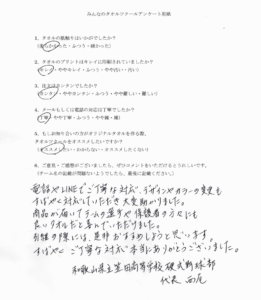 みんなのタオルツクールアンケート用紙
1. タオルの肌触りはいかがでしたか？
柔らかかった・ふつう・硬かった
2. タオルのプリントはキレイに印刷されていましたか？
キレイ・ややキレイ・ふつう・やや汚い・汚い
3. 注文はカンタンでしたか？
カンタン・ややカンタン・ふつう・やや難しい・難しい
4. メールもしくは電話の対応は丁寧でしたか？
丁寧・やや丁寧・ふつう・やや雑・雑
5. もしお知り合いの方がオリジナルタオルを作る際、
タオルツクールをオススメしたいですか？
オススメしたい・わからない・オススメしたくない
6. ご意見・ご感想がございましたら、ぜひコメントをいただけるとうれしいです。
電話やLINEでご丁寧な対応、デザインやカラーの変更も
すばやく対応していただき大変助かりました。
商品が届いてチームの選手や保護者の方々にも
良いタオルだと喜んでいただけました。
機会の際には、是非おすすめしようと思います。
すばやく ご丁寧な対応 本当にありがとうございました。
和歌山県立 高等学校 硬式野球部
代表 西尾